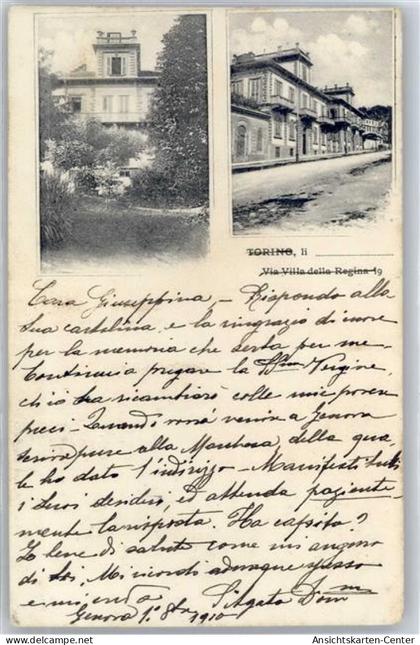 TORINO, li
Via Villa della Regina 19
Cara Giuseppina, - Rispondo alla
sua cartolina, e la ringrazio di cuore
per la memoria che serba per me -
Continua pregare la SSma Vergine,
ch'io ricambierò colle mie povere
preci - Quando vorrà venire a Genova
pure alla Marchesa, della qua-
le ho dato l'indirizzo - Manifesti tutti
i suoi desideri, ed attenda paziente-
mente la risposta. Ha capito?
Lo bene di salute come mi auguro
di lei. Mi ricordi adunque spesso
e mi creda
Genova 1° 1910